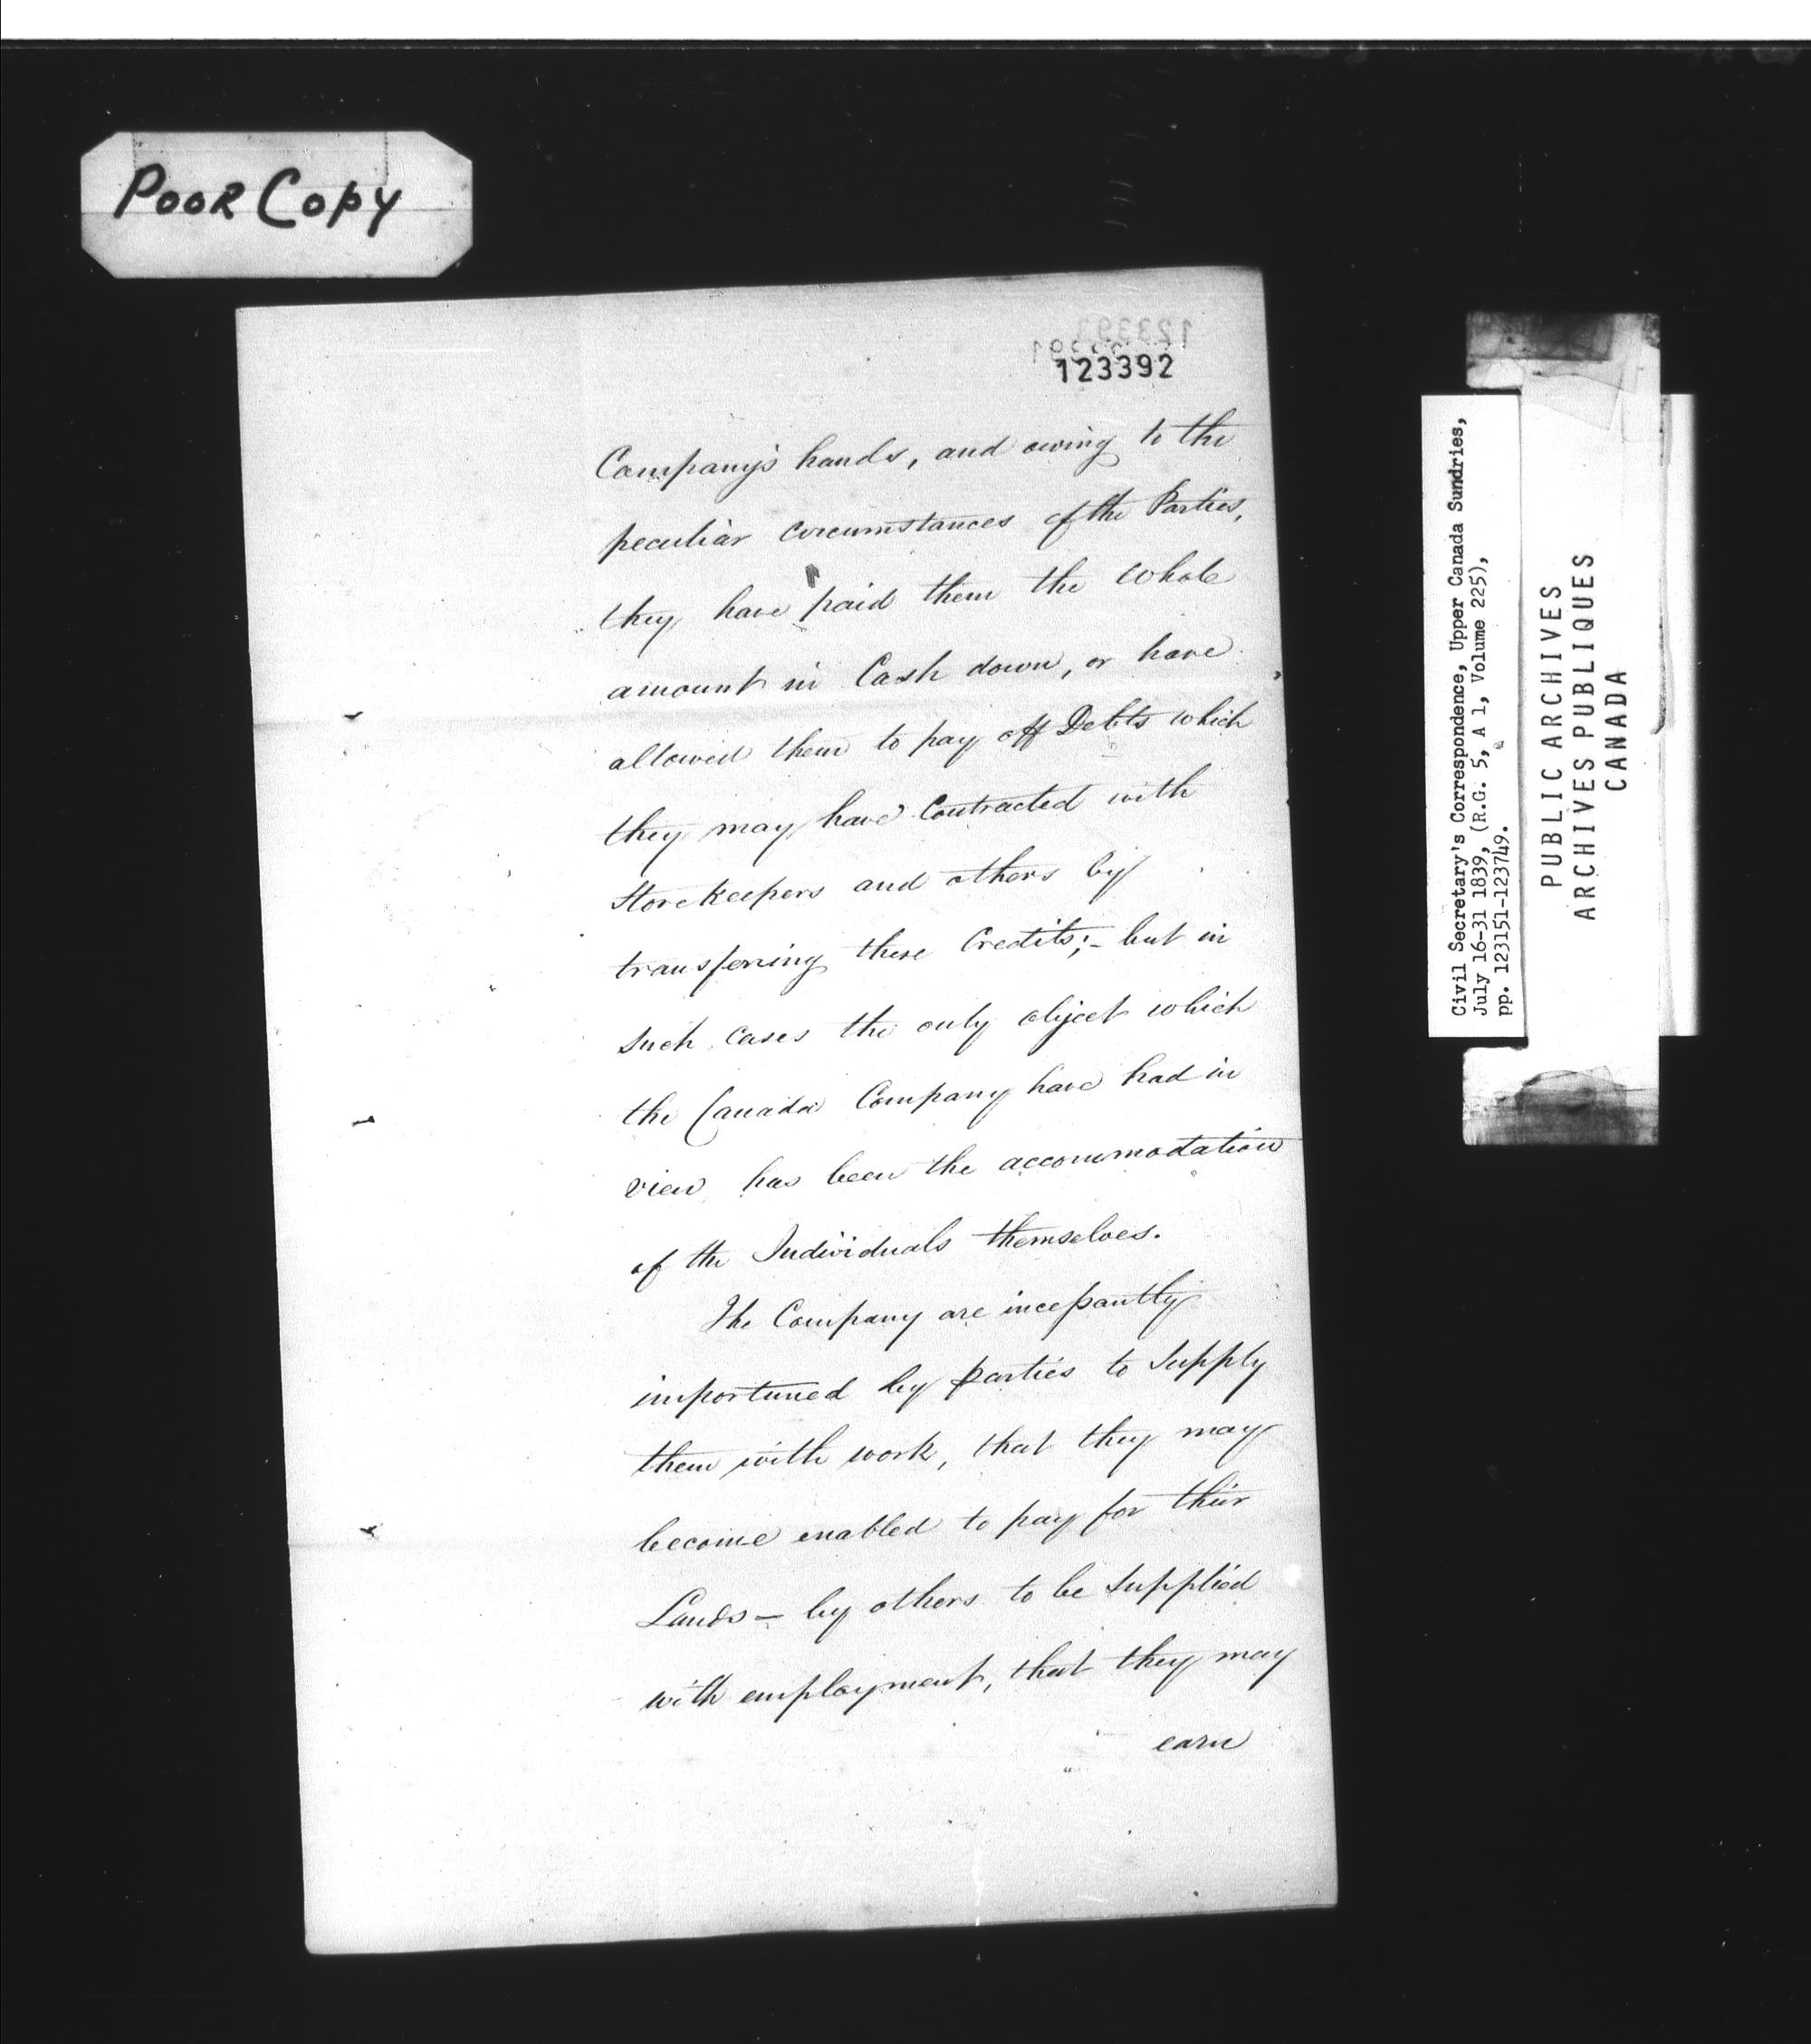 Poor Copy
123392
Company's hands, and owing to the
peculiar circumstances of the Parties,
they have paid them the whole
amount in Cash down, or have
allowed them to pay off Debts which
they may have Contracted with
Storekeepers and others by
transfering these Credits;- but in
such cases the only object which
the Canada Company have had in
view has been the accommodation
of the Individuals themselves.
The Company are incessantly
importuned by parties to supply
them with work, that they may
become enabled to pay for their
Lands - by others to be supplied
with employment, that they may
earn
Civil Secretary's Correspondence, Upper Canada Sundries,
July 16-31 1839, (R.G. 5, A 1, Volume 225),
pp. 123151-123749.
PUBLIC ARCHIVES
ARCHIVES PUBLIQUES
CANADA